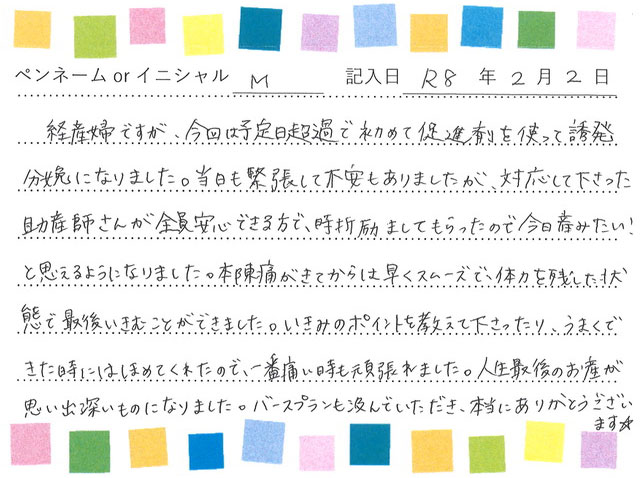 ペンネーム or イニシャル M 記入日 R8 年 2 月 2 日
経産婦ですが、今回は予定日超過で初めて促進剤を使って誘発
分娩になりました。当日も緊張して不安もありましたが、対応して下さった
助産師さんが全員安心できる方で、時折励ましてもらったので今日産みたい!
と思えるようになりました。本陣痛がきてからは早くスムーズで、体力を残した状
態で最後いきむことができました。いきみのポイントを教えて下さったり、うまくで
きた時にはほめてくれたので、一番痛い時も頑張れました。人生最後のお産が
思い出深いものになりました。バースプランも汲んでいただき、本当にありがとうござい
ます☆